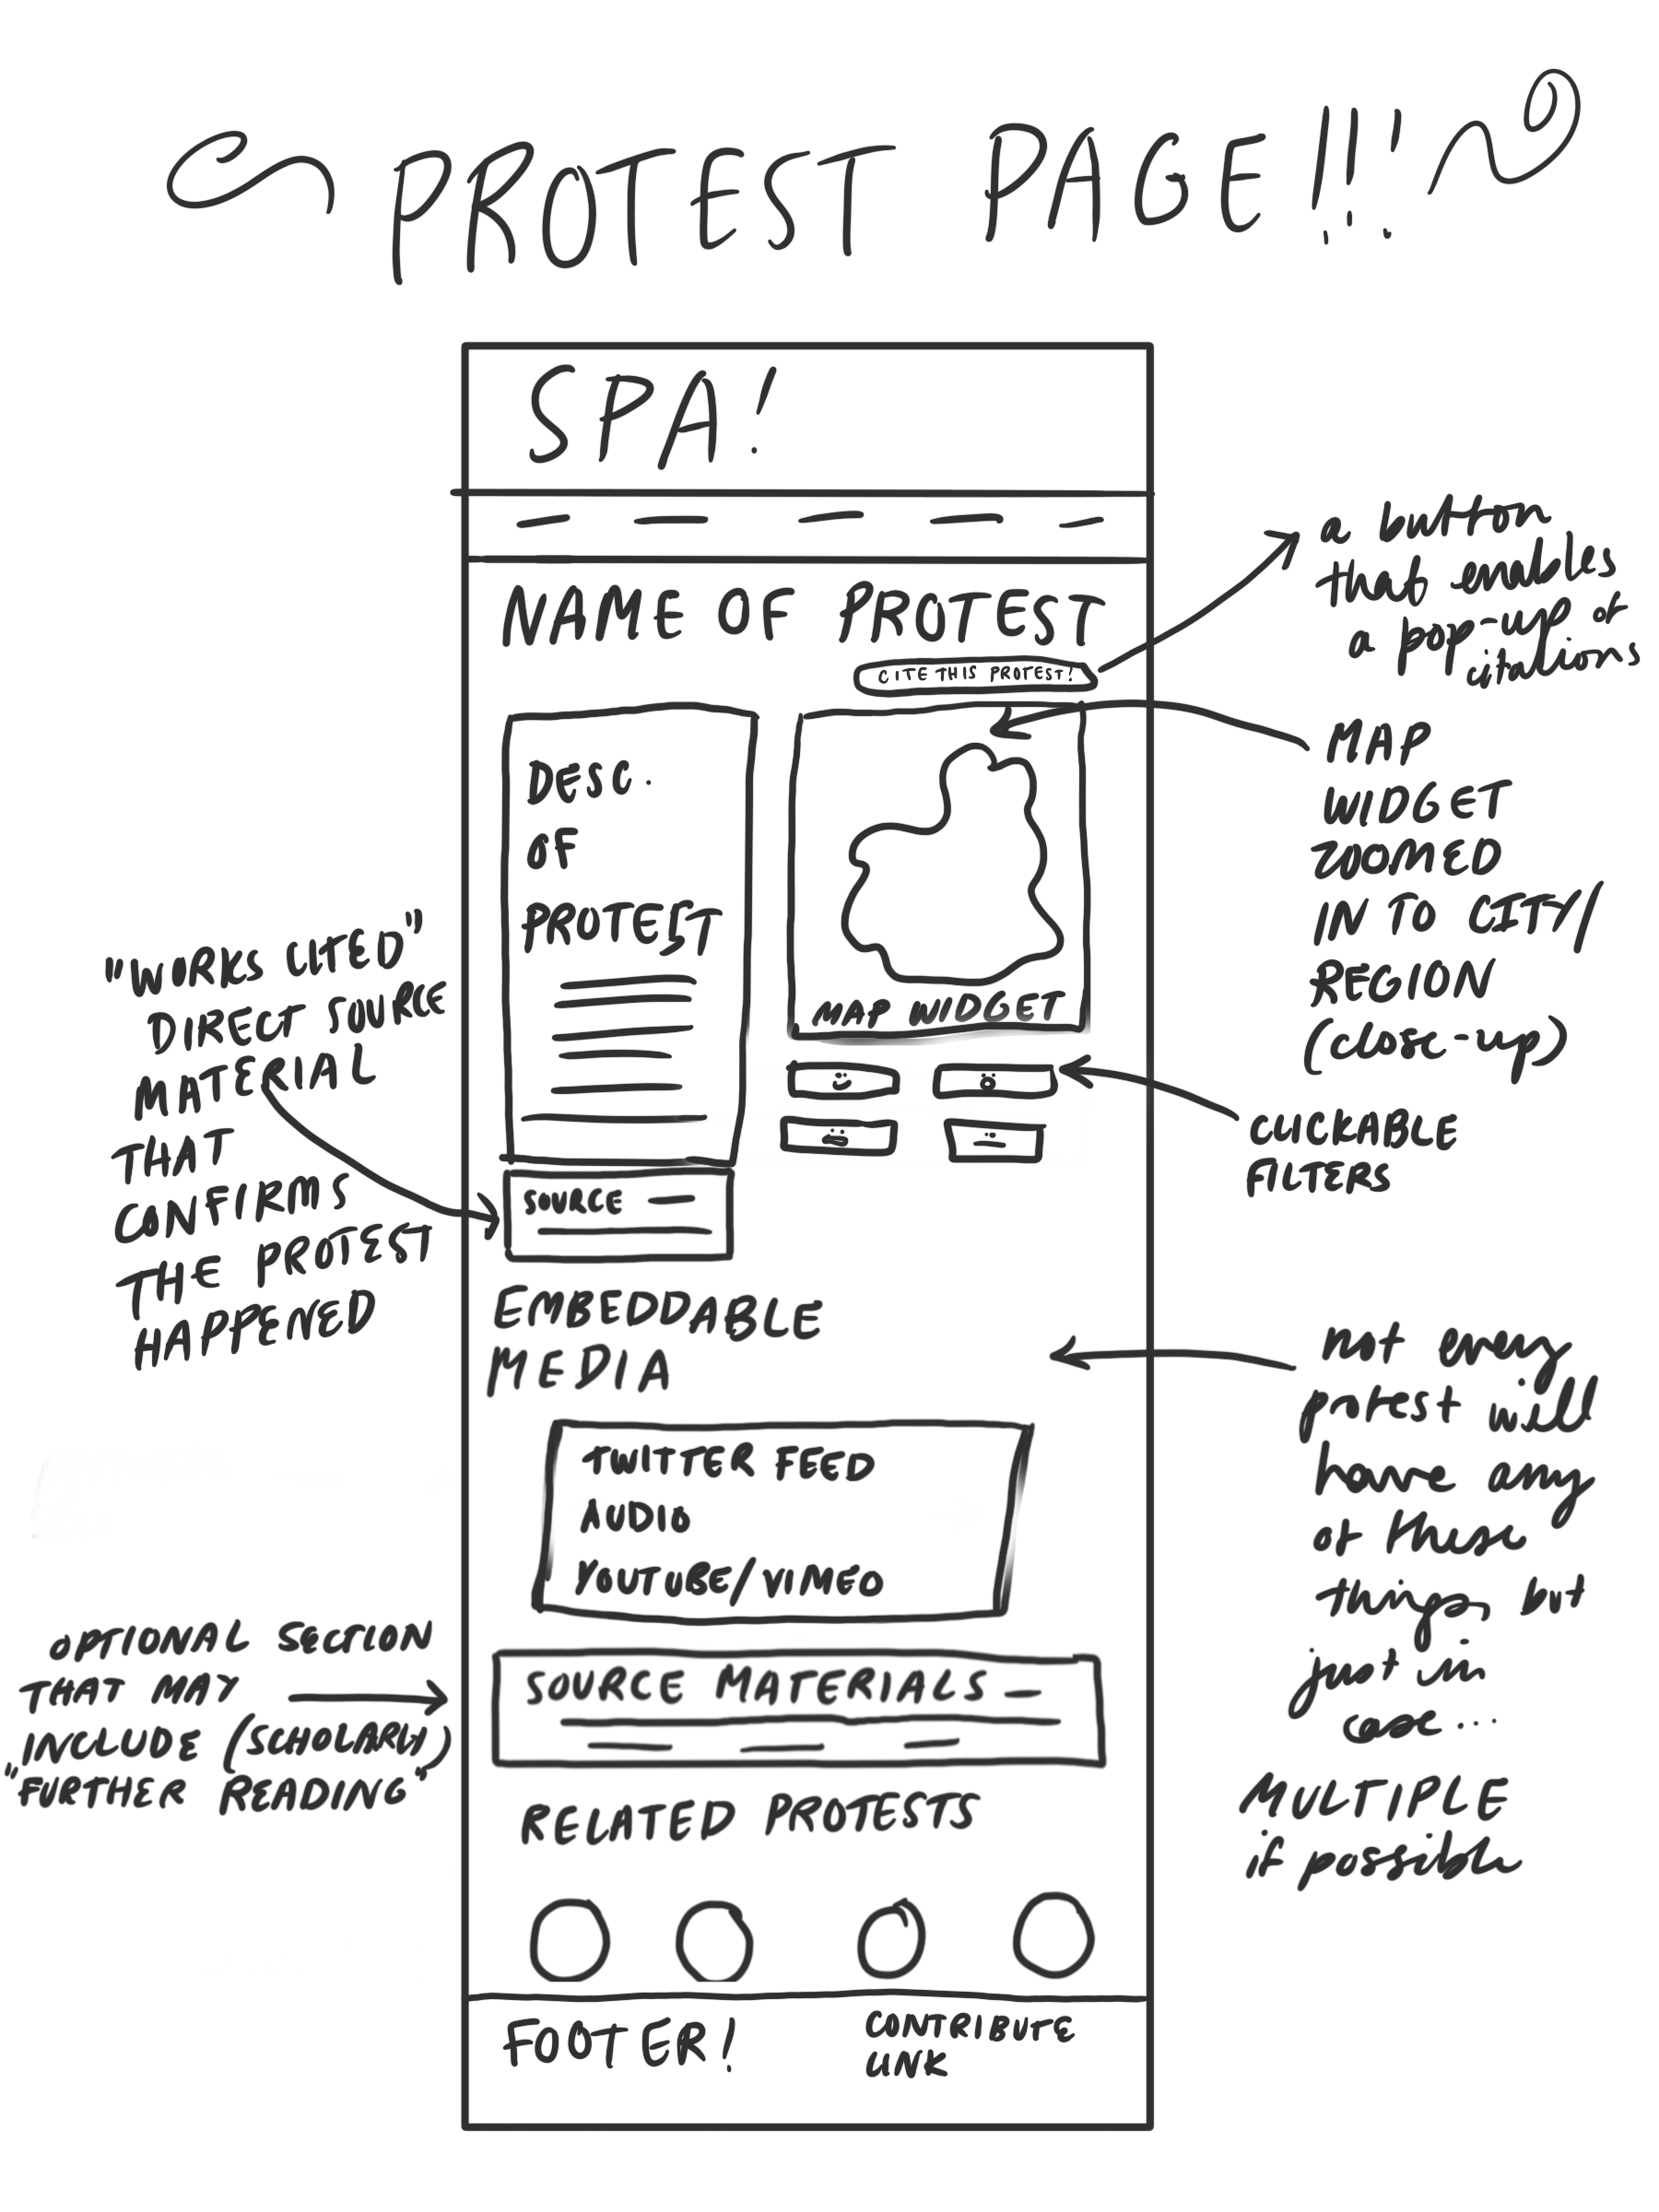 PROTEST PAGE!!!
SPA!
NAME OF PROTEST
CITE THIS PROTEST!
a button
that enables
a pop-up of
citations
DESC.
OF
PROTEST
MAP WIDGET
MAP
WIDGET
ZOOMED
IN TO CITY/
REGION
(close-up)
CLICKABLE
FILTERS
"WORKS CITED"
DIRECT SOURCE
MATERIAL
THAT
CONFIRMS
THE PROTEST
HAPPENED
SOURCE
EMBEDDABLE
MEDIA
TWITTER FEED
AUDIO
YOUTUBE/VIMEO
not every
protest will
have any
of these
things, but
just in
case...
MULTIPLE
if possible
OPTIONAL SECTION
THAT MAY
INCLUDE (SCHOLARLY)
"FURTHER READING"
SOURCE MATERIALS
RELATED PROTESTS
FOOTER!
CONTRIBUTE
LINK